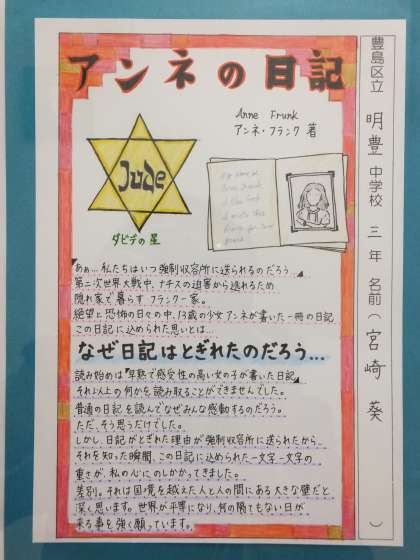 アンネの日記
Anne Frunk
アンネ・フランク 著
Jude
ダビデの星
あぁ…私たちはいつ強制収容所に送られるのだろう…
第二次世界大戦中、ナチスの迫害から逃れるため
隠れ家で暮らすフランク一家。
絶望と恐怖の日々の中、13歳の少女アンネが書いた一冊の日記
この日記に込められた思いとは…
なぜ日記はとぎれたのだろう…
読み始めは「早熟で感受性の高い女の子が書いた日記」
それ以上の何かを読み取ることができませんでした。
普通の日記を読んでなぜみんな感動するのだろう。
ただ、そう思うだけでした。
しかし、日記がとぎれた理由が強制収容所に送られたから。
それを知った瞬間、この日記に込められた一文字一文字の
重さが、私の心にのしかかってきました。
差別。それは国境を越えた人と人の間にある大きな壁だと
深く思います。世界が平等になり、何の隔てもない日が
来る事を強く願っています。
豊島区立 明豊 中学校 三 年 名前（宮崎 葵）